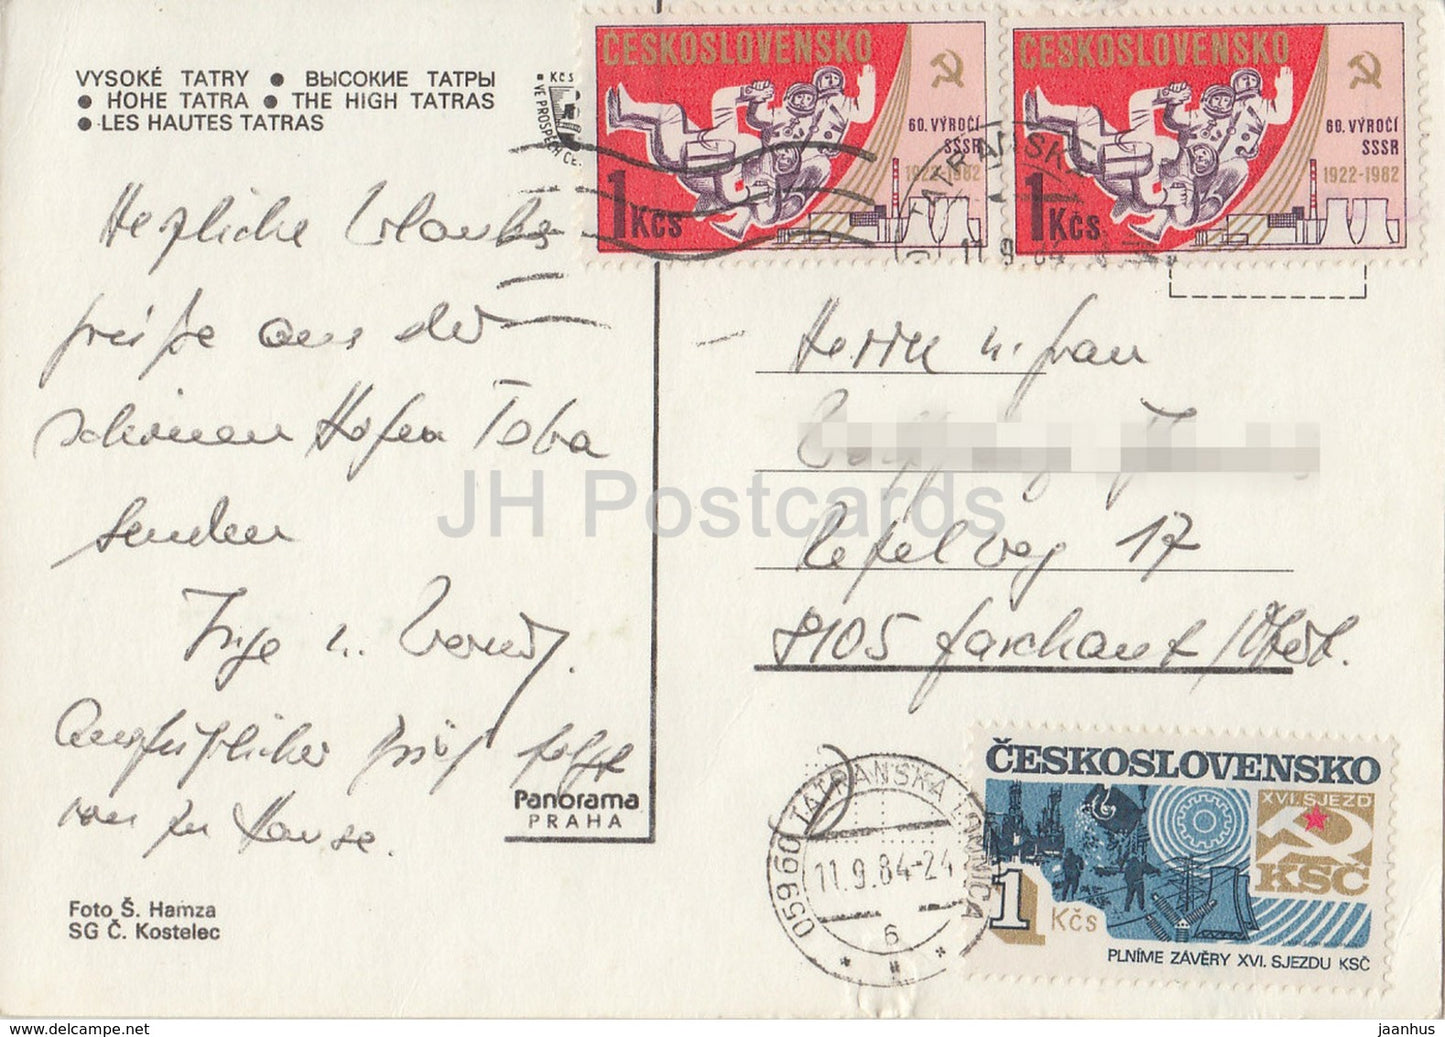 VYSOKÉ TATRY ● ВЫСОКИЕ ТАТРЫ
● HOHE TATRA ● THE HIGH TATRAS
● LES HAUTES TATRAS
Kčs
VE PROSPĚCH
ČESKOSLOVENSKO
60. VÝROČÍ
SSSR
1922-1982
1 Kčs
ČESKOSLOVENSKO
60. VÝROČÍ
SSSR
1922-1982
1 Kčs
TATRANSKÁ
11.9.84
Herzliche Urlaubs
grüße aus der
schönen Hohen Tatra
senden
Inge u.
Ausführlicher Brief folgt
von zu Hause.
Panorama
PRAHA
Foto Š. Hamza
SG Č. Kostelec
Herrn u. Frau
17
8105 Farchant
JH Postcards
05960 TATRANSKÁ LOMNICA
11.9.84-24
6
ČESKOSLOVENSKO
XVI. SJEZD
KSČ
1 Kčs
PLNÍME ZÁVĚRY XVI. SJEZDU KSČ
https://www.hippostcard.com/store/jh-postcards
jaanhus